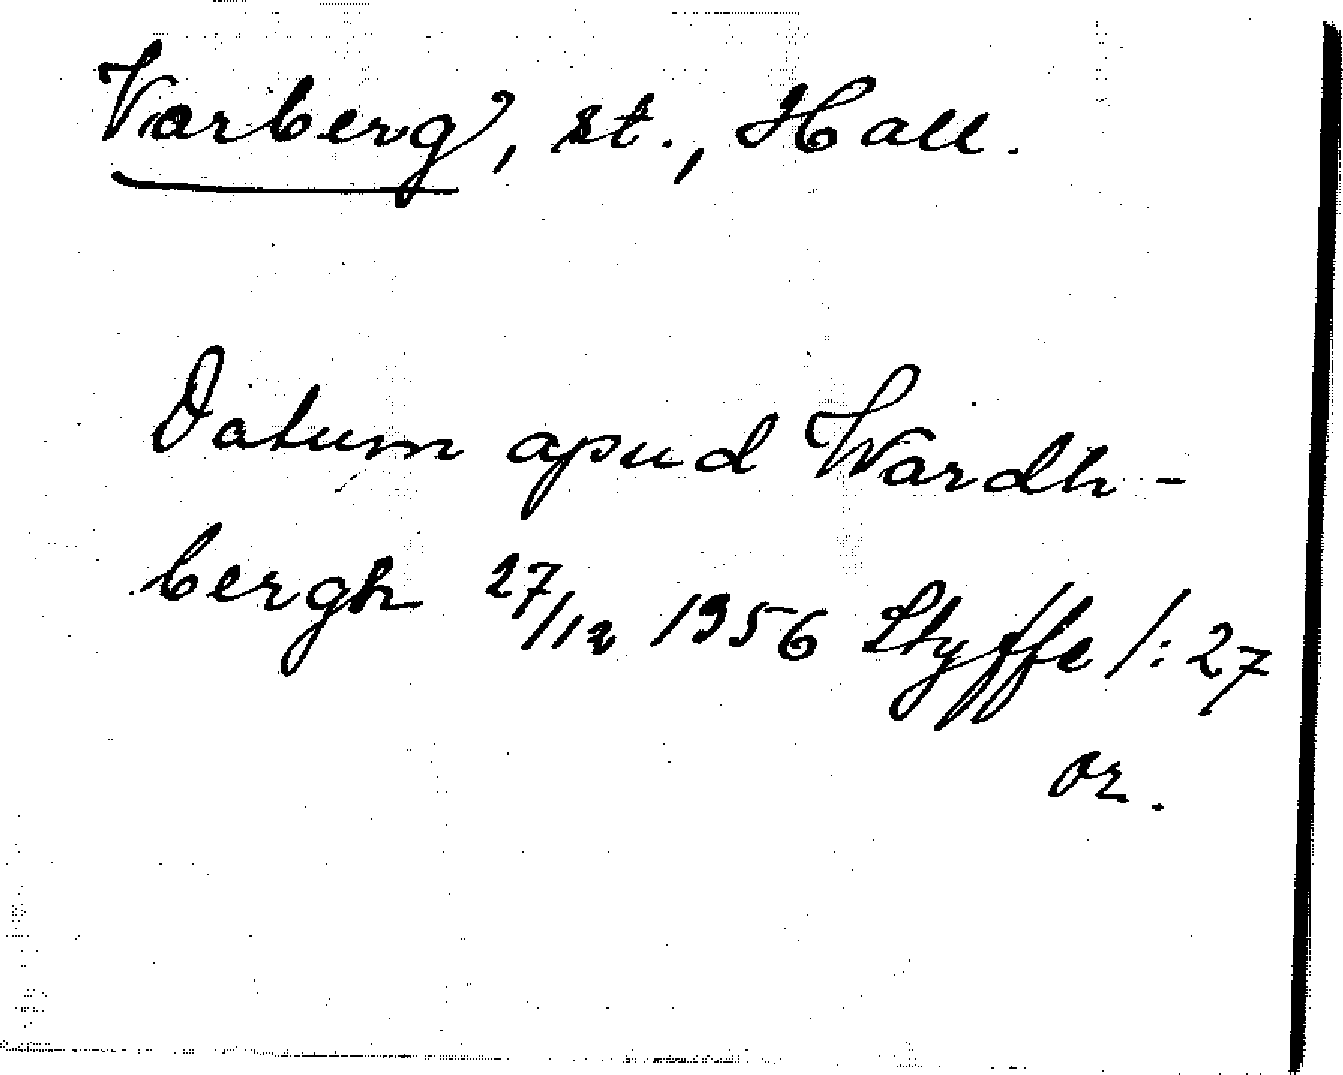 Varberg, st., Hall.
Datum apud Wardh-
bergh 27/12 1356 Styffe I:27
or.